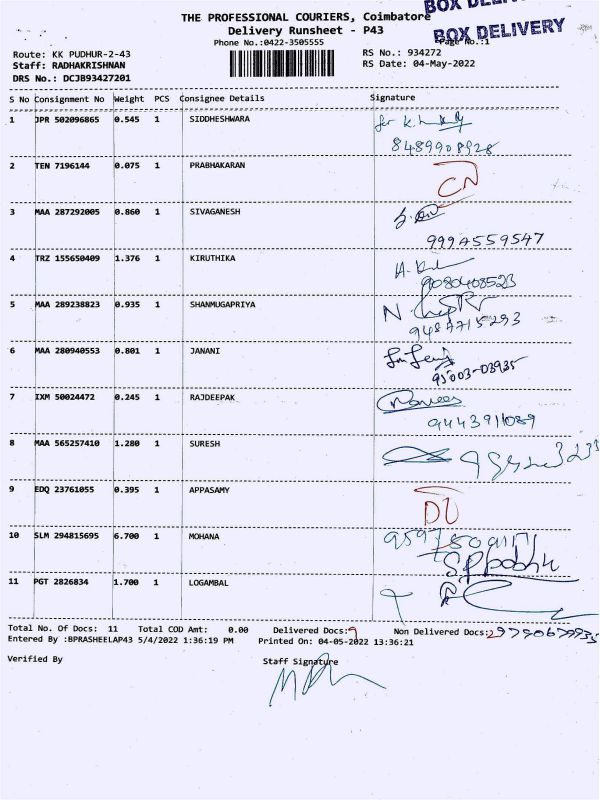 BOX DELIVERY
THE PROFESSIONAL COURIERS, Coimbatore
BOX DELIVERY
Delivery Runsheet - P43
Phone No.:0422-3505555
Page No.:1
Route: KK PUDHUR-2-43
RS No.: 934272
Staff: RADHAKRISHNAN
RS Date: 04-May-2022
DRS No.: DCJB93427201
S No Consignment No Weight PCS Consignee Details Signature
1 JPR 502096865 0.545 1 SIDDHESHWARA
8489908928
2 TEN 7196144 0.075 1 PRABHAKARAN CN
3 MAA 287292005 0.860 1 SIVAGANESH
9994559547
4 TRZ 155650409 1.376 1 KIRUTHIKA
9080408523
5 MAA 289238823 0.935 1 SHANMUGAPRIYA
9487715293
6 MAA 280940553 0.801 1 JANANI
95003-03935
7 IXM 50024472 0.245 1 RAJDEEPAK
9443911089
8 MAA 565257410 1.280 1 SURESH
9 EDQ 23761055 0.395 1 APPASAMY DL
10 SLM 294815695 6.700 1 MOHANA
11 PGT 2826834 1.700 1 LOGAMBAL
Total No. Of Docs: 11 Total COD Amt: 0.00 Delivered Docs:9 Non Delivered Docs:2
Entered By :BPRASHEELAP43 5/4/2022 1:36:19 PM Printed On: 04-05-2022 13:36:21
Verified By Staff Signature